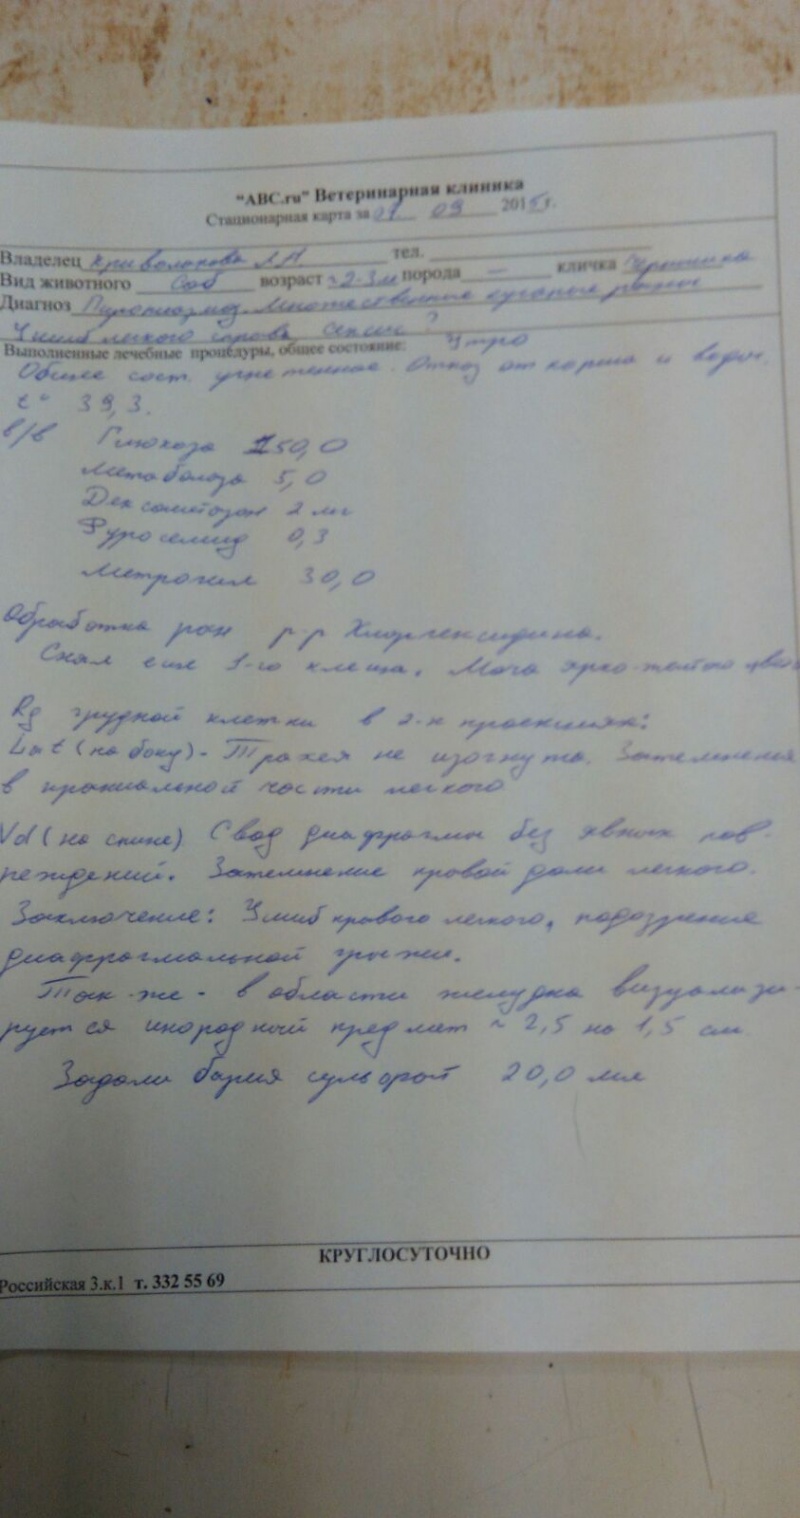 "ABC.ru" Ветеринарная клиника
Стационарная карта за 01 09 2015 г.
Владелец тел.
Вид животного Соб возраст ~2-3 м порода — кличка Черника
Диагноз Пироплазмоз. Множественные кусаные раны
Ушиб легкого справа Сепсис ?
Выполненные лечебные процедуры, общее состояние: Утро
Общее сост. угнетенное. Отказ от корма и воды.
t° 39,3.
в/в Глюкоза 150,0
Метаболаза 5,0
Дексометазон 2 мг
Фуросемид 0,3
Метрогил 30,0
Обработка ран р-р Хлоргексидина.
Снял еще 1-го клеща. Моча ярко-желтого цвета
Rg грудной клетки в 2-х проекциях:
Lat (на боку) - Трахея не изогнута. Затемнения
в краниальной части легкого
Vd (на спине) Свод диафрагмы без явных пов-
реждений. Затемнение правой доли легкого.
Заключение: Ушиб правого легкого, подозрение
диафрагмальной грыжи.
Так же - в области желудка визуализи-
руется инородный предмет ~ 2,5 на 1,5 см.
Задали бария сульфат 20,0 мл
КРУГЛОСУТОЧНО
Российская 3.к.1 т. 332 55 69